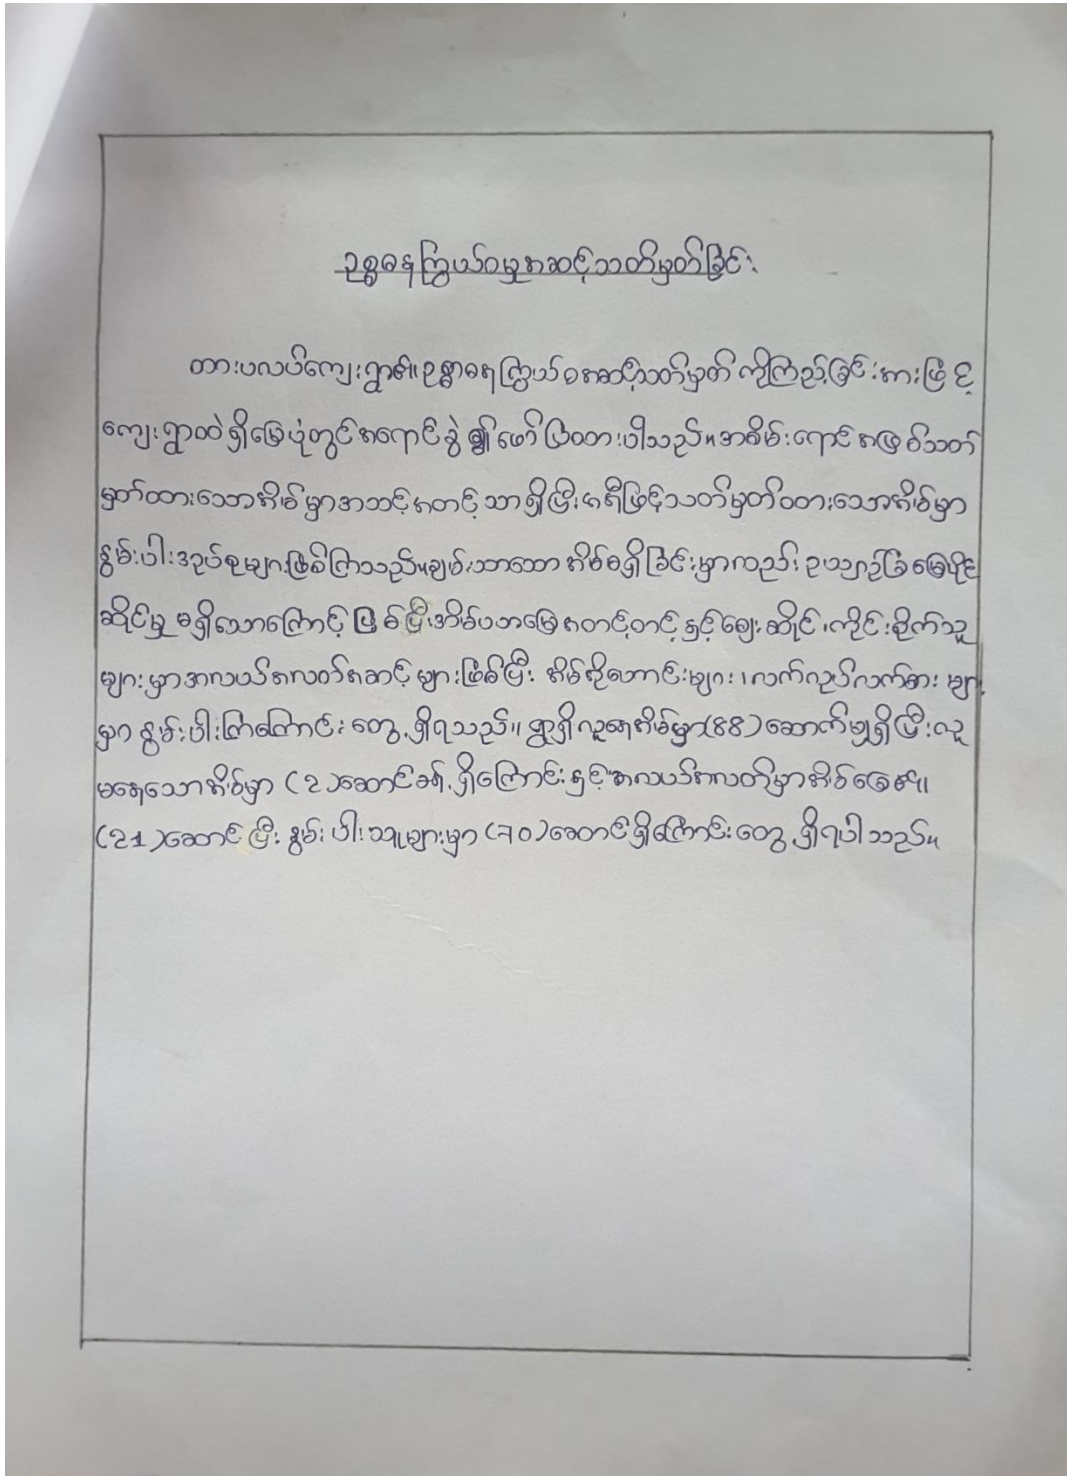 ဥစ္စဓနကြွယ်ဝမှုအဆင့်သတ်မှတ်ခြင်း
ထားပလပ်ကျေးရွာ၏ ဥစ္စာဓနကြွယ်ဝအဆင့်သတ်မှတ် ကိုကြည့်ခြင်းအားဖြင့်
ကျေးရွာထဲရှိမြေပုံတွင်အရောင်ခွဲ၍ ဖော်ပြထားပါသည်။ အစိမ်းရောင်အဖြစ်သတ်
မှတ်ထားသောအိမ်မှာအသင့်အတင့်သာရှိပြီး အနီဖြင့်သတ်မှတ်ထားသောအိမ်မှာ
နွမ်းပါးအုပ်စုများဖြစ်ကြသည်။ ချမ်းသာသော အိမ်မရှိခြင်းမှာလည်း ဥယျာဉ်ခြံမြေပိုင်
ဆိုင်မှု မရှိသောကြောင့် ဖြစ်ပြီး အိမ်ပဘမြေအတင့်တင့် နှင့် ဈေးဆိုင်၊ ကိုင်းစိုက်သူ
များမှာအလယ်အလတ်အဆင့်များဖြစ်ပြီး အိမ်အိုဟောင်းများ၊ လက်လုပ်လက်စား များ
မှာ နွမ်းပါးကြကြောင်း တွေ့ရှိရသည်။ ရွာရှိလူနေအိမ်မှာ (88) ဆောက်မျှရှိပြီး လူ
မနေသောအိမ်မှာ (2) ဆောင်ခန့်ရှိကြောင်းနှင့် အလယ်အလတ်မှာအိမ်ခြေ၏
(21) ဆောင်ပြီး နွမ်းပါးသူများမှာ (70) ဆောင်ရှိကြောင်း တွေ့ရှိရပါသည်။